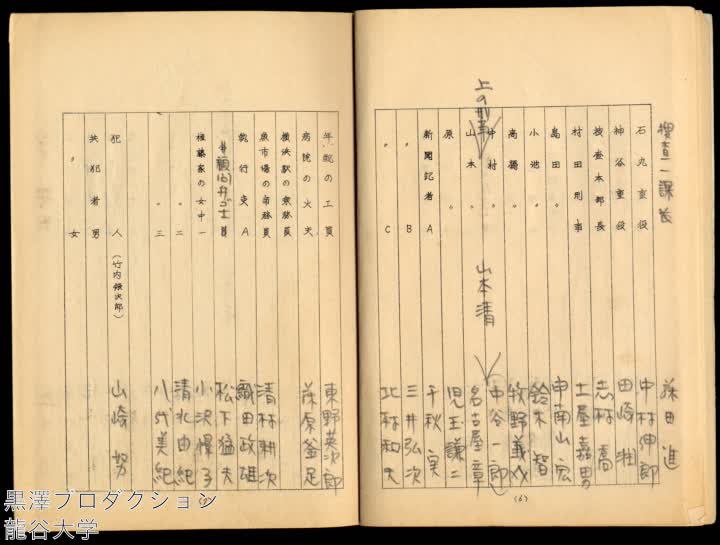 捜査一課長 藤田進
石丸重役 中村伸郎
神谷重役 田崎潤
捜査本部長 志村喬
村田刑事 土屋嘉男
島田〃 中南山宏
小池〃 鈴木智
高橋〃 牧野義介
上の刑事 山本清
中村〃 中谷一郎
山本〃 名古屋章
原〃 児玉謙二
新聞記者A 千秋実
〃B 三井弘次
〃C 北村和夫
(6)
年配の工員 東野英次郎
病院の火夫 藤原釜足
横浜駅の乗務員
魚市場の事務員 清村耕次
執行吏A 織田政雄
〃顧問弁ゴ士 松下猛夫
権藤家の女中一 小沢惇子
〃二 清水由紀
〃三 八代美紀
犯人(竹内銀次郎) 山崎努
共犯者男
〃女
黒澤プロダクション
龍谷大学